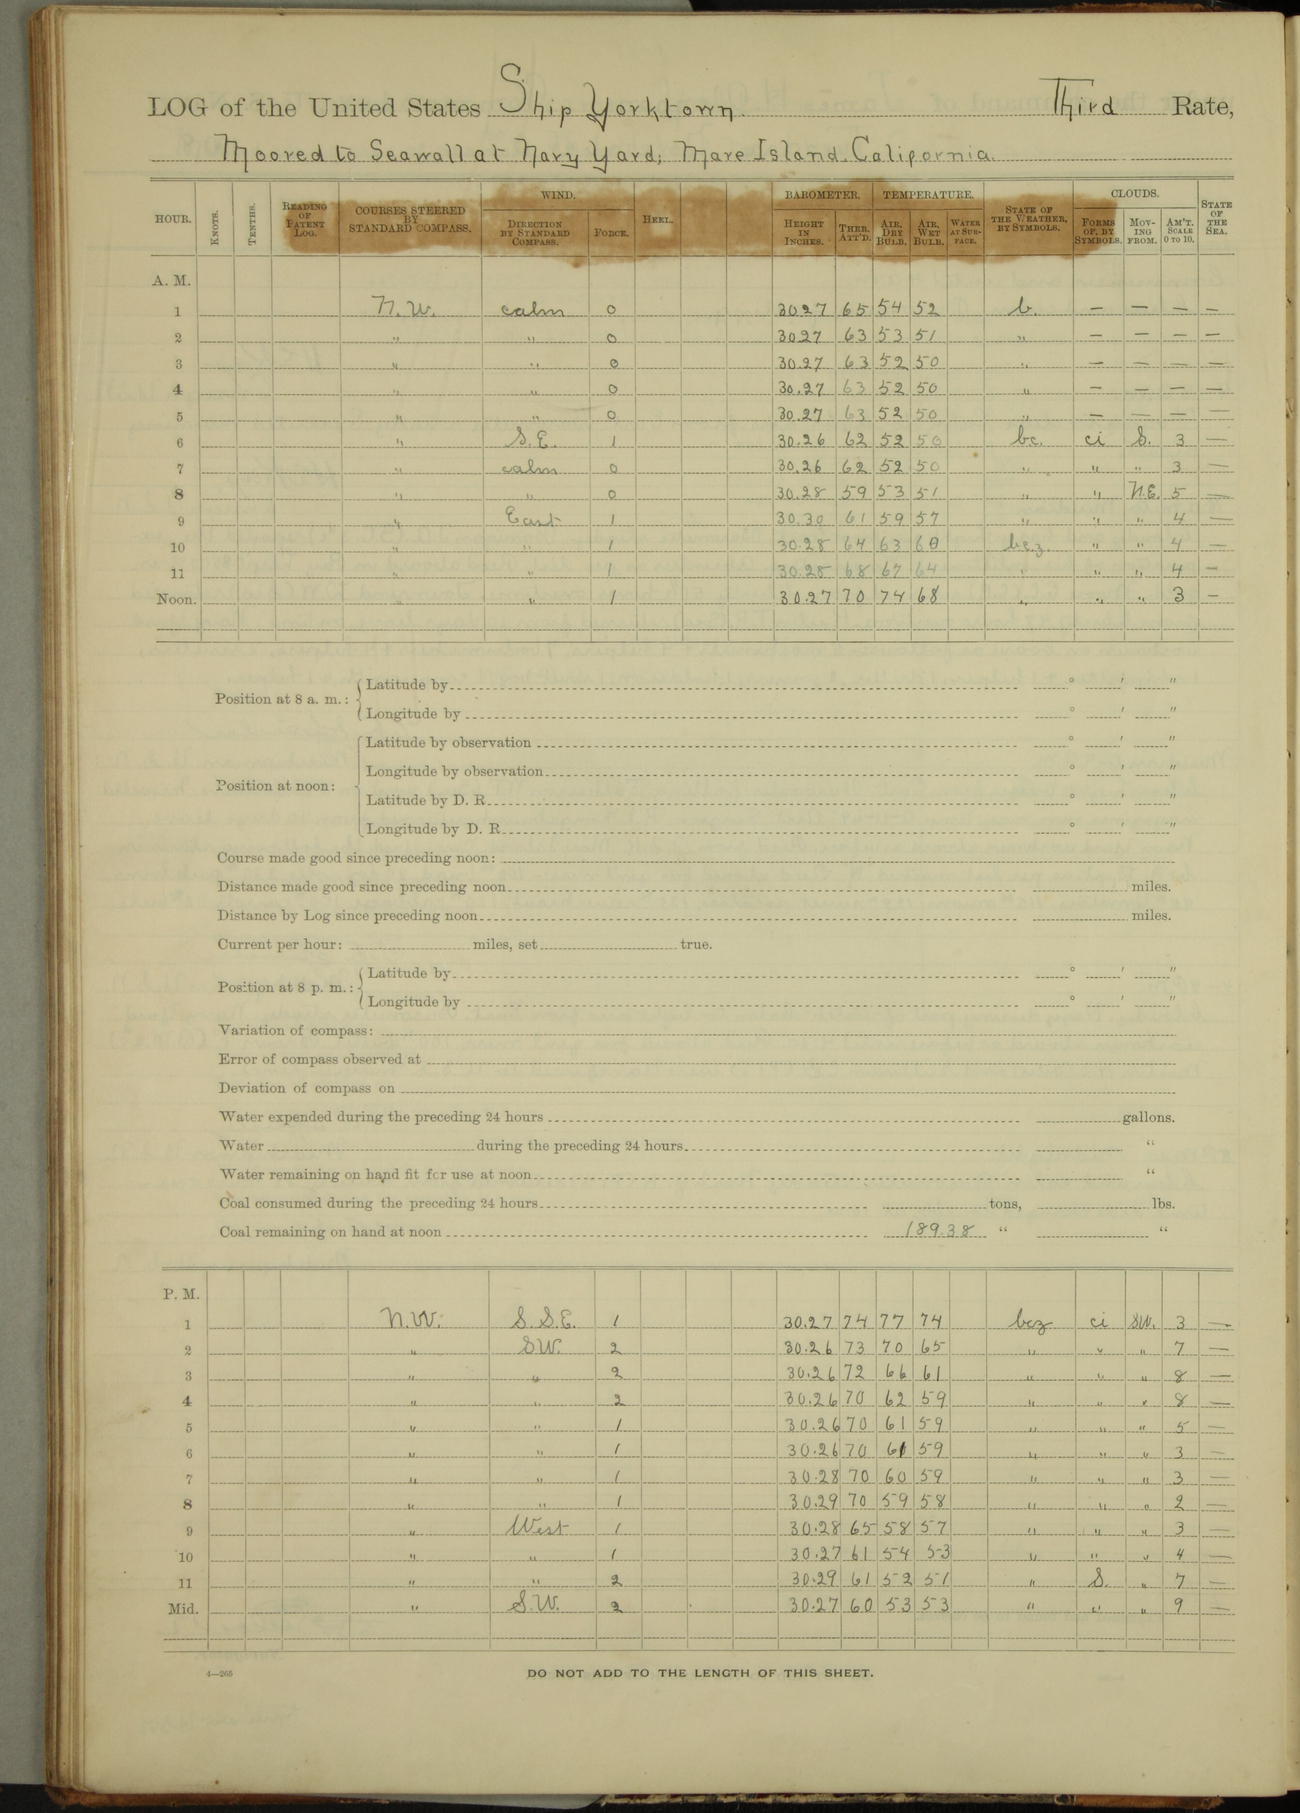 LOG of the United States Ship Yorktown. Third Rate,
Moored to Seawall at Navy Yard, Mare Island, California.
HOUR. KNOTS. TENTHS. READING OF PATENT LOG. COURSES STEERED BY STANDARD COMPASS. WIND. DIRECTION BY STANDARD COMPASS. FORCE. HEEL. BAROMETER. HEIGHT IN INCHES. THER. ATT'D. TEMPERATURE. AIR, DRY BULB. AIR, WET BULB. WATER AT SURFACE. STATE OF THE WEATHER, BY SYMBOLS. CLOUDS. FORMS OF, BY SYMBOLS. MOVING FROM. AM'T. SCALE 0 TO 10. STATE OF THE SEA.
A. M.
1 N.W. calm 0 30.27 65 54 52 b. — — — —
2 " " 0 30.27 63 53 51 " — — — —
3 " " 0 30.27 63 52 50 " — — — —
4 " " 0 30.27 63 52 50 " — — — —
5 " " 0 30.27 63 52 50 " — — — —
6 " S.E. 1 30.26 62 52 50 bc. ci S. 3 —
7 " calm 0 30.26 62 52 50 " " " 3 —
8 " " 0 30.28 59 53 51 " " N.E. 5 —
9 " East 1 30.30 61 59 57 " " " 4 —
10 " " 1 30.28 64 63 60 bcz. " " 4 —
11 " " 1 30.28 68 67 64 " " " 4 —
Noon. " " 1 30.27 70 74 68 " " " 3 —
Position at 8 a. m.: Latitude by ° ' "
Longitude by ° ' "
Latitude by observation ° ' "
Position at noon: Longitude by observation ° ' "
Latitude by D. R. ° ' "
Longitude by D. R. ° ' "
Course made good since preceding noon:
Distance made good since preceding noon miles.
Distance by Log since preceding noon miles.
Current per hour: miles, set true.
Position at 8 p. m.: Latitude by ° ' "
Longitude by ° ' "
Variation of compass:
Error of compass observed at
Deviation of compass on
Water expended during the preceding 24 hours gallons.
Water during the preceding 24 hours "
Water remaining on hand fit for use at noon "
Coal consumed during the preceding 24 hours tons, lbs.
Coal remaining on hand at noon 189.38 " "
P. M.
1 N.W. S.S.E. 1 30.27 74 77 74 bcz ci SW. 3 —
2 " SW. 2 30.26 73 70 65 " " " 7 —
3 " " 2 30.26 72 66 61 " " " 8 —
4 " " 2 30.26 70 62 59 " " " 8 —
5 " " 1 30.26 70 61 59 " " " 5 —
6 " " 1 30.26 70 61 59 " " " 3 —
7 " " 1 30.28 70 60 59 " " " 3 —
8 " " 1 30.29 70 59 58 " " " 2 —
9 " West 1 30.28 65 58 57 " " " 3 —
10 " " 1 30.27 61 54 53 " " " 4 —
11 " " 2 30.29 61 52 51 " S. " 7 —
Mid. " S.W. 2 30.27 60 53 53 " " " 9 —
4—265 DO NOT ADD TO THE LENGTH OF THIS SHEET.